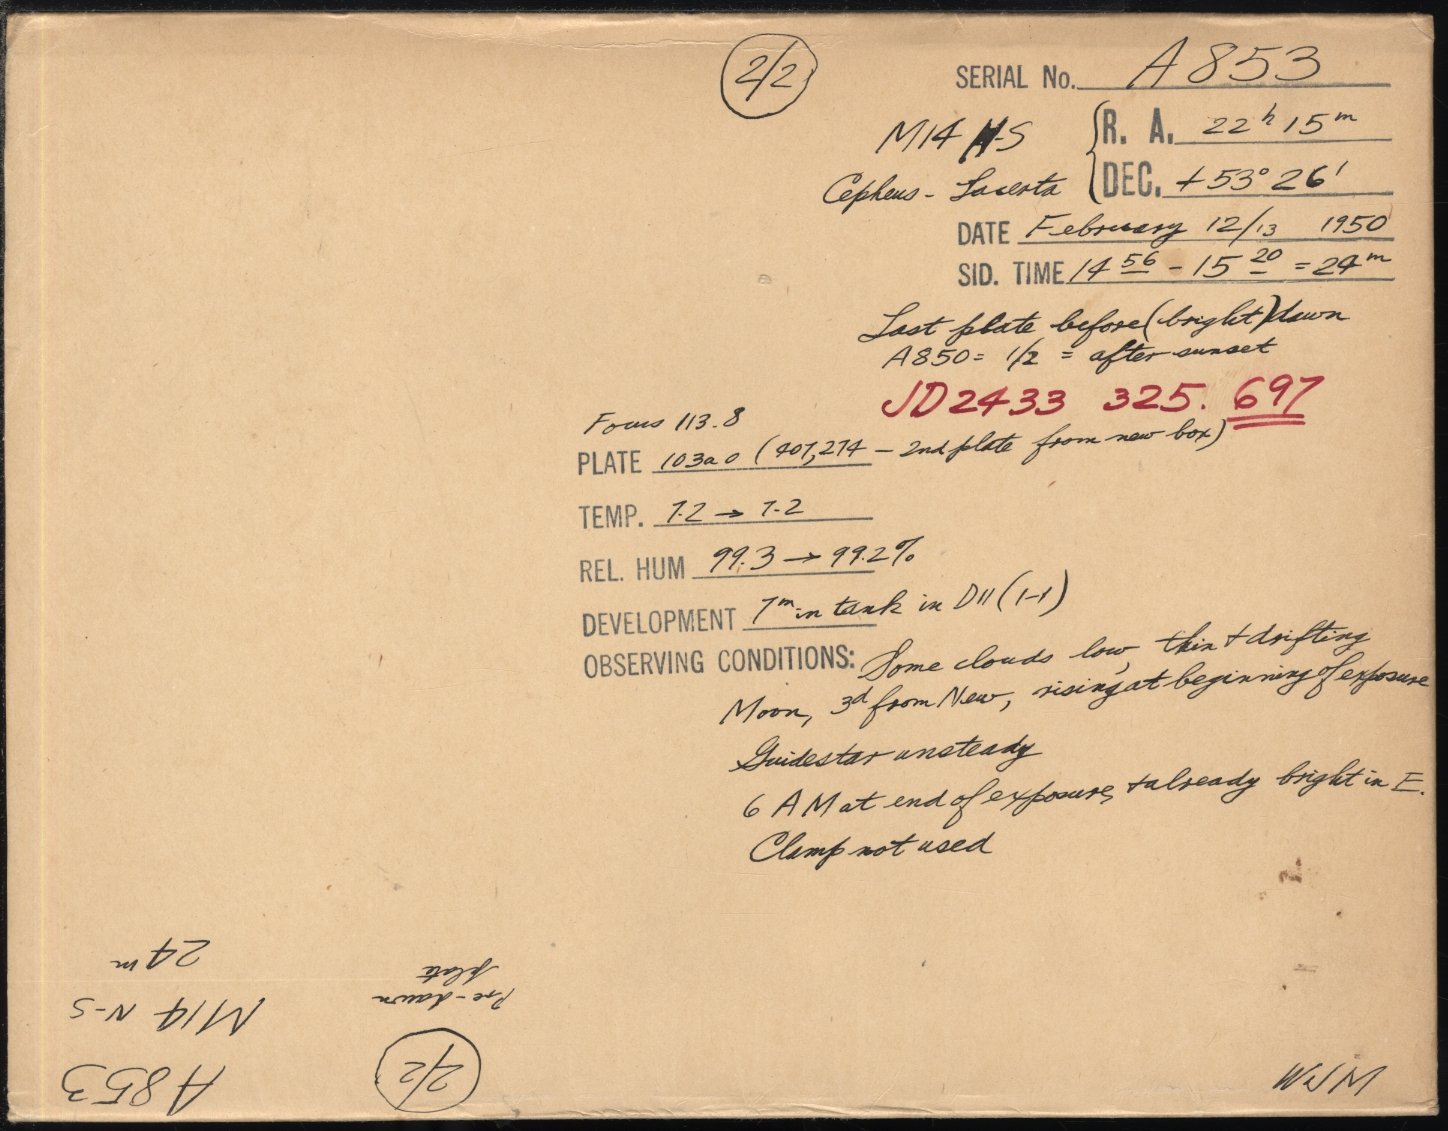 2/2
SERIAL No. A853
M14 N-S
R. A. 22h 15m
Cepheus - Lacerta
DEC. +53° 26'
DATE February 12/13 1950
SID. TIME 14 56 - 15 20 = 24m
Last plate before (bright) dawn
A850 = 1/2 = after sunset
JD2433 325. 697
Focus 113.8
PLATE 103a o (407,274 - 2nd plate from new box)
TEMP. 7.2 → 7.2
REL. HUM 99.3 → 99.2%
DEVELOPMENT 7m in tank in D11 (1-1)
OBSERVING CONDITIONS: Some clouds low, thin + drifting
Moon, 3d from New, rising at beginning of exposure
Guidestar unsteady
6 AM at end of exposure, + already bright in E.
Clamp not used
WJM
A853
2/2
M14 N-S
Pre-dawn
plate
24m